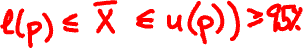 l(p) ≤ X̄ ≤ u(p)) ≥ 95%